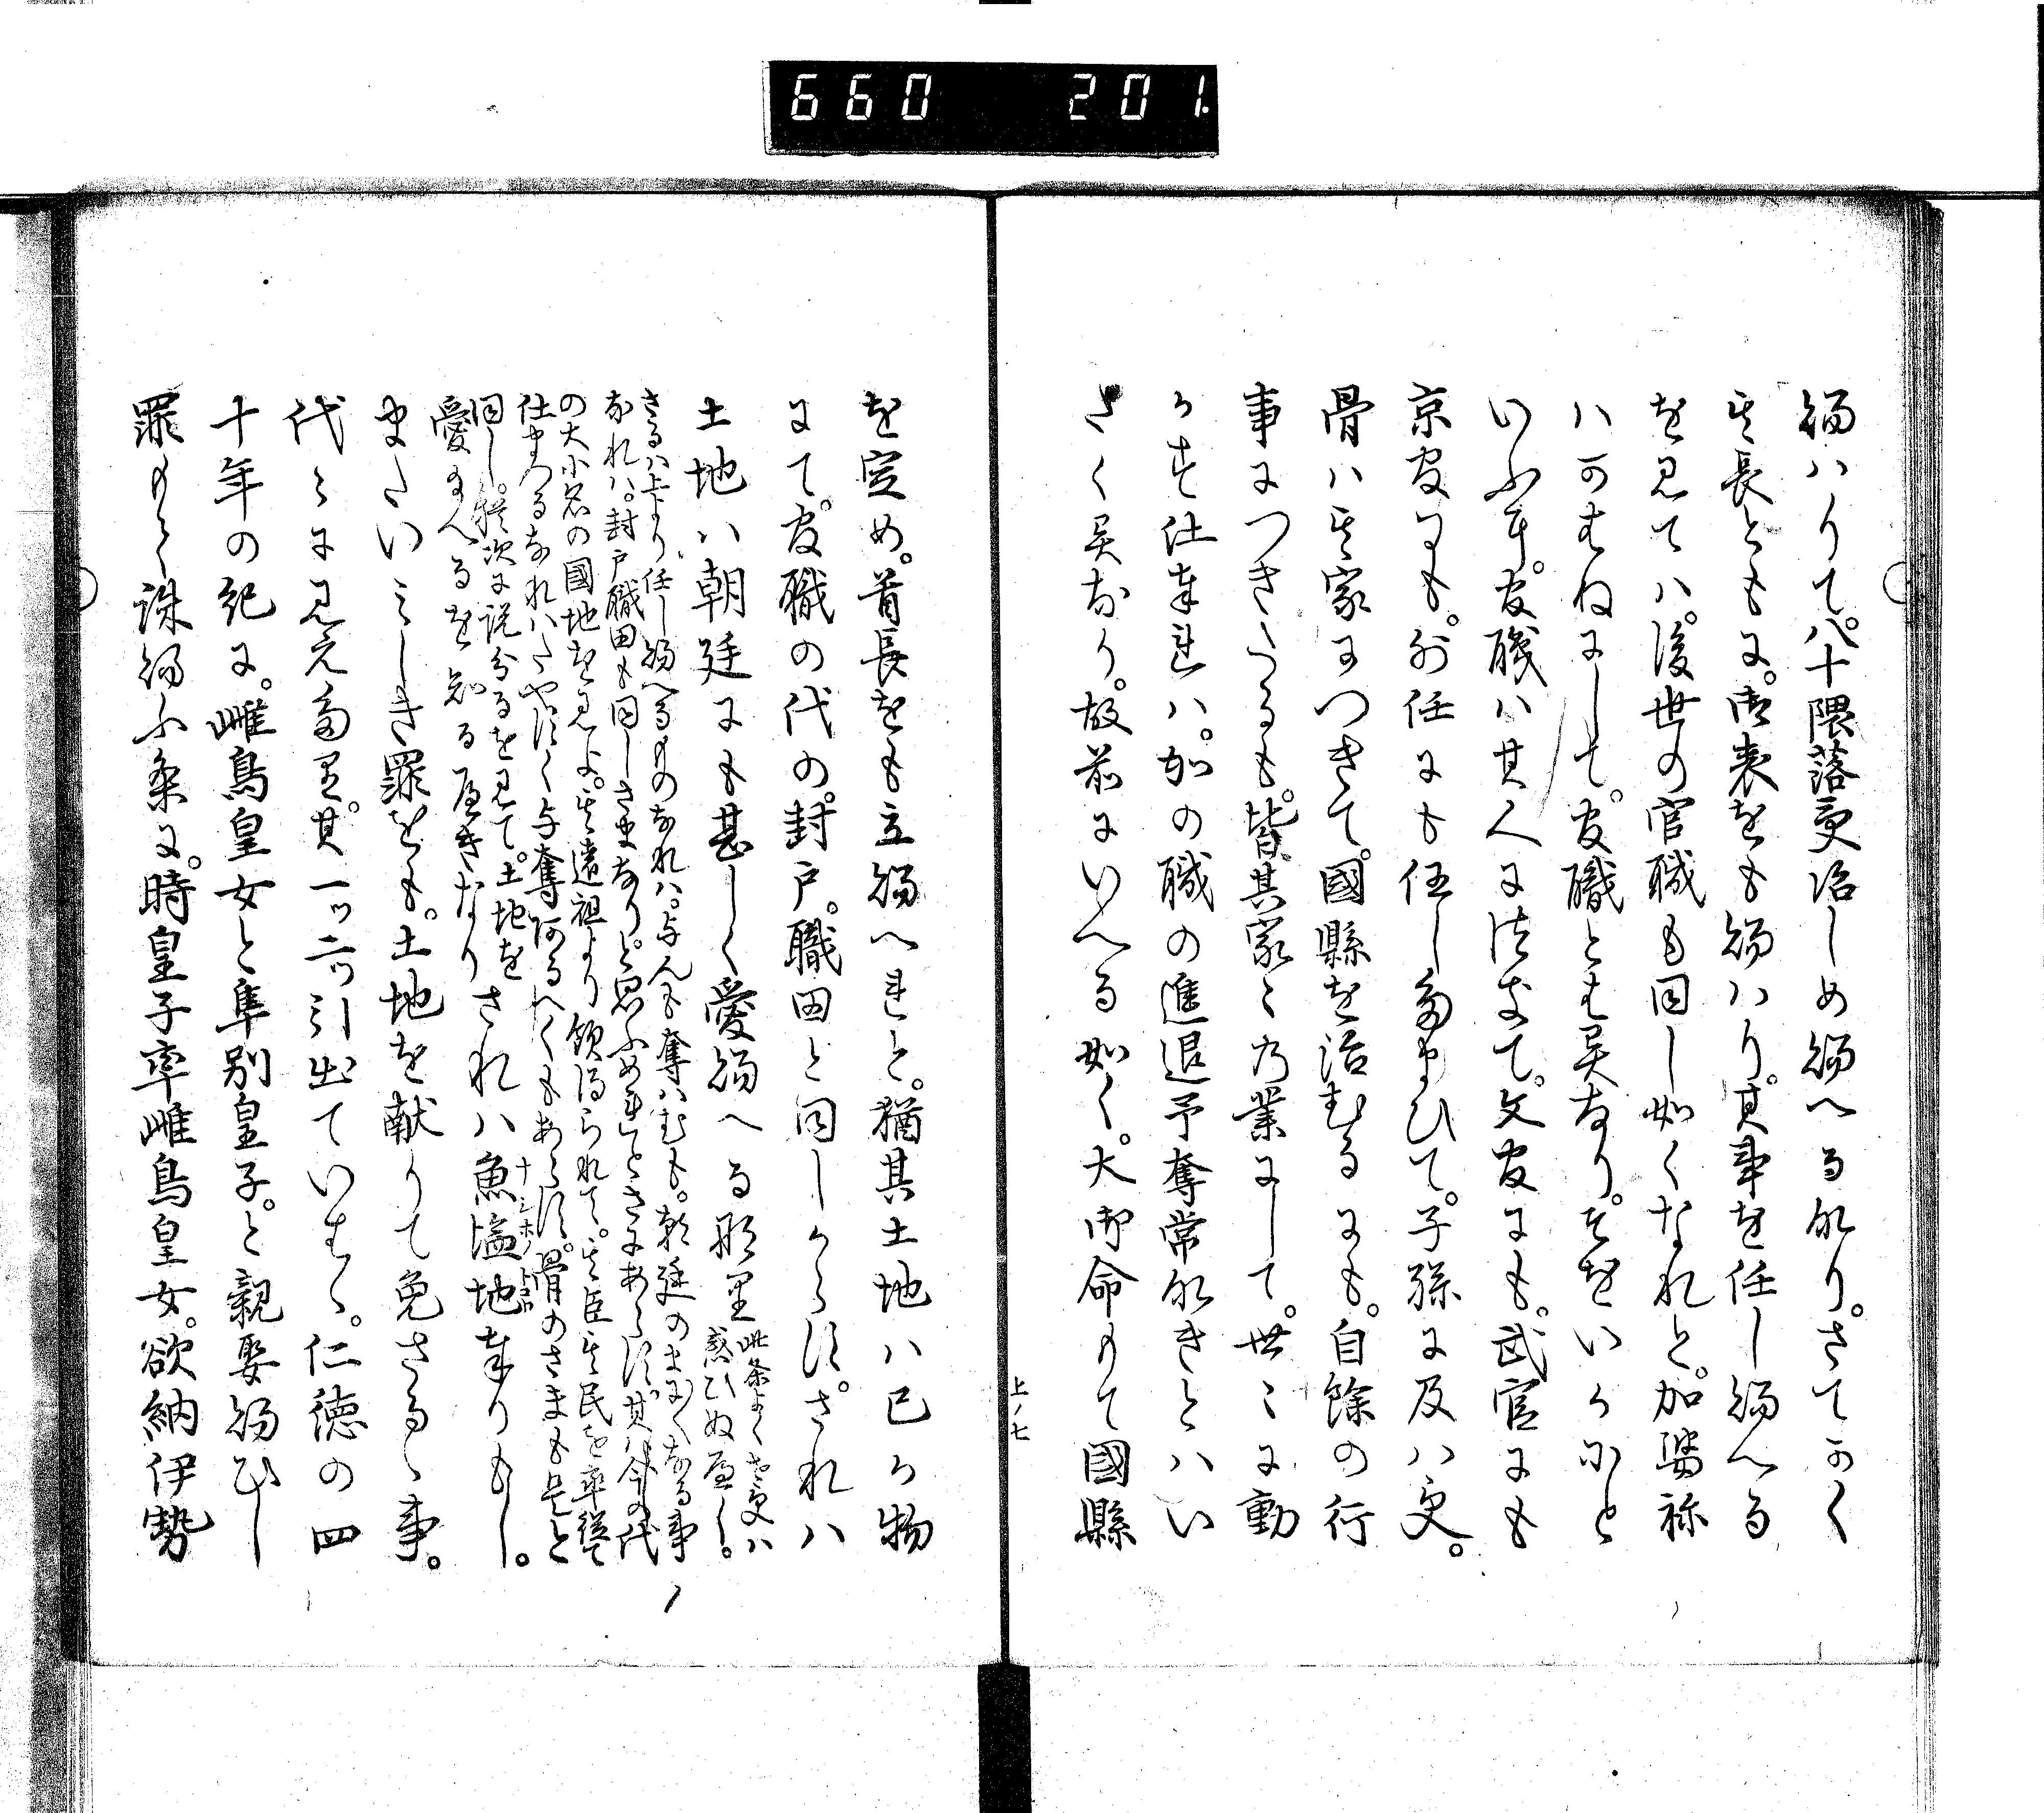 660 201.
給ハりて。八十隈落更治しめ給へる所り。さてかく
其長ともに。御表をも給ハり。其事を任し給へる
を見てハ。後世の官職も同し如くなれと。加婆祢
ハかはねにして。官職とは異なり。そをいかにと
いふに。官職ハ其人に依まて。文官にも。武官にも
京官にも。外任にも任し給まひて。子孫に及ハ更。
骨ハ其家につきて。國縣を治むるにも。自餘の行
事につきたるも。皆其家々乃業にして。世々に動
かす仕奉れハ。加の職の進退予奪常所きとハい
さく異なり。故前にいへる如く。大御命もて國縣
上ノ七
を定め。首長をも立給へれと。猶其土地ハ己か物
にて。官職の代の。封戸。職田と同しからす。されハ
土地ハ朝廷にも甚しく愛給へる那里 此条よくせ更ハ
惑ひぬへし。
さるハ上より任し給へるものなれハ。与んも奪ハむも。朝廷のまに〳〵なる事
なれハ。封戸職田も同しさまなりと思ふめれとさにあらす。其ハ今の代
の大小名の國地を見よ。其遠祖より領得られて。其臣其民を率従て
仕まつるなれハたやすく与奪阿るへくもあらす。骨のさまも是と
同し。猶次に説分るを見て。土地を
愛まへるを知るへきなり されハ魚塩地奉りもし。
ナシホノトコロ
またいミしき罪をも。土地を献りて免さるゝ事。
代々に見え多里。其一ッ二ッ引出ていはゝ。仁徳の四
十年の紀に。雌鳥皇女と隼別皇子。と親娶給ひし
罪もて誅給ふ条に。時皇子率雌鳥皇女。欲納伊勢